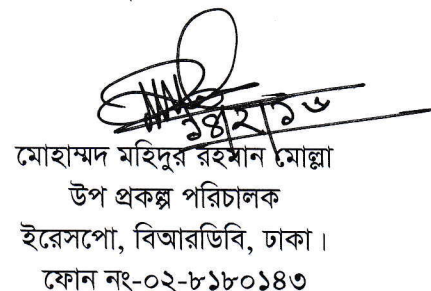 ১৪/২/১৬
মোহাম্মদ মহিদুর রহমান মোল্লা
উপ প্রকল্প পরিচালক
ইরেসপো, বিআরডিবি, ঢাকা।
ফোন নং-০২-৮১৮০১৪৩